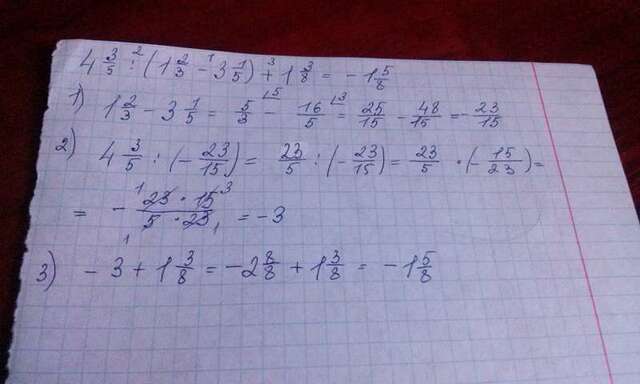 4 3/5 : (1 2/3 - 3 1/5) + 1 3/8 = - 1 5/8
1) 1 2/3 - 3 1/5 = 5/3 - 16/5 = 25/15 - 48/15 = - 23/15
2) 4 3/5 : (- 23/15) = 23/5 : (- 23/15) = 23/5 · (- 15/23) =
= - 23 · 15 / 5 · 23 = - 3
3) - 3 + 1 3/8 = - 2 8/8 + 1 3/8 = - 1 5/8